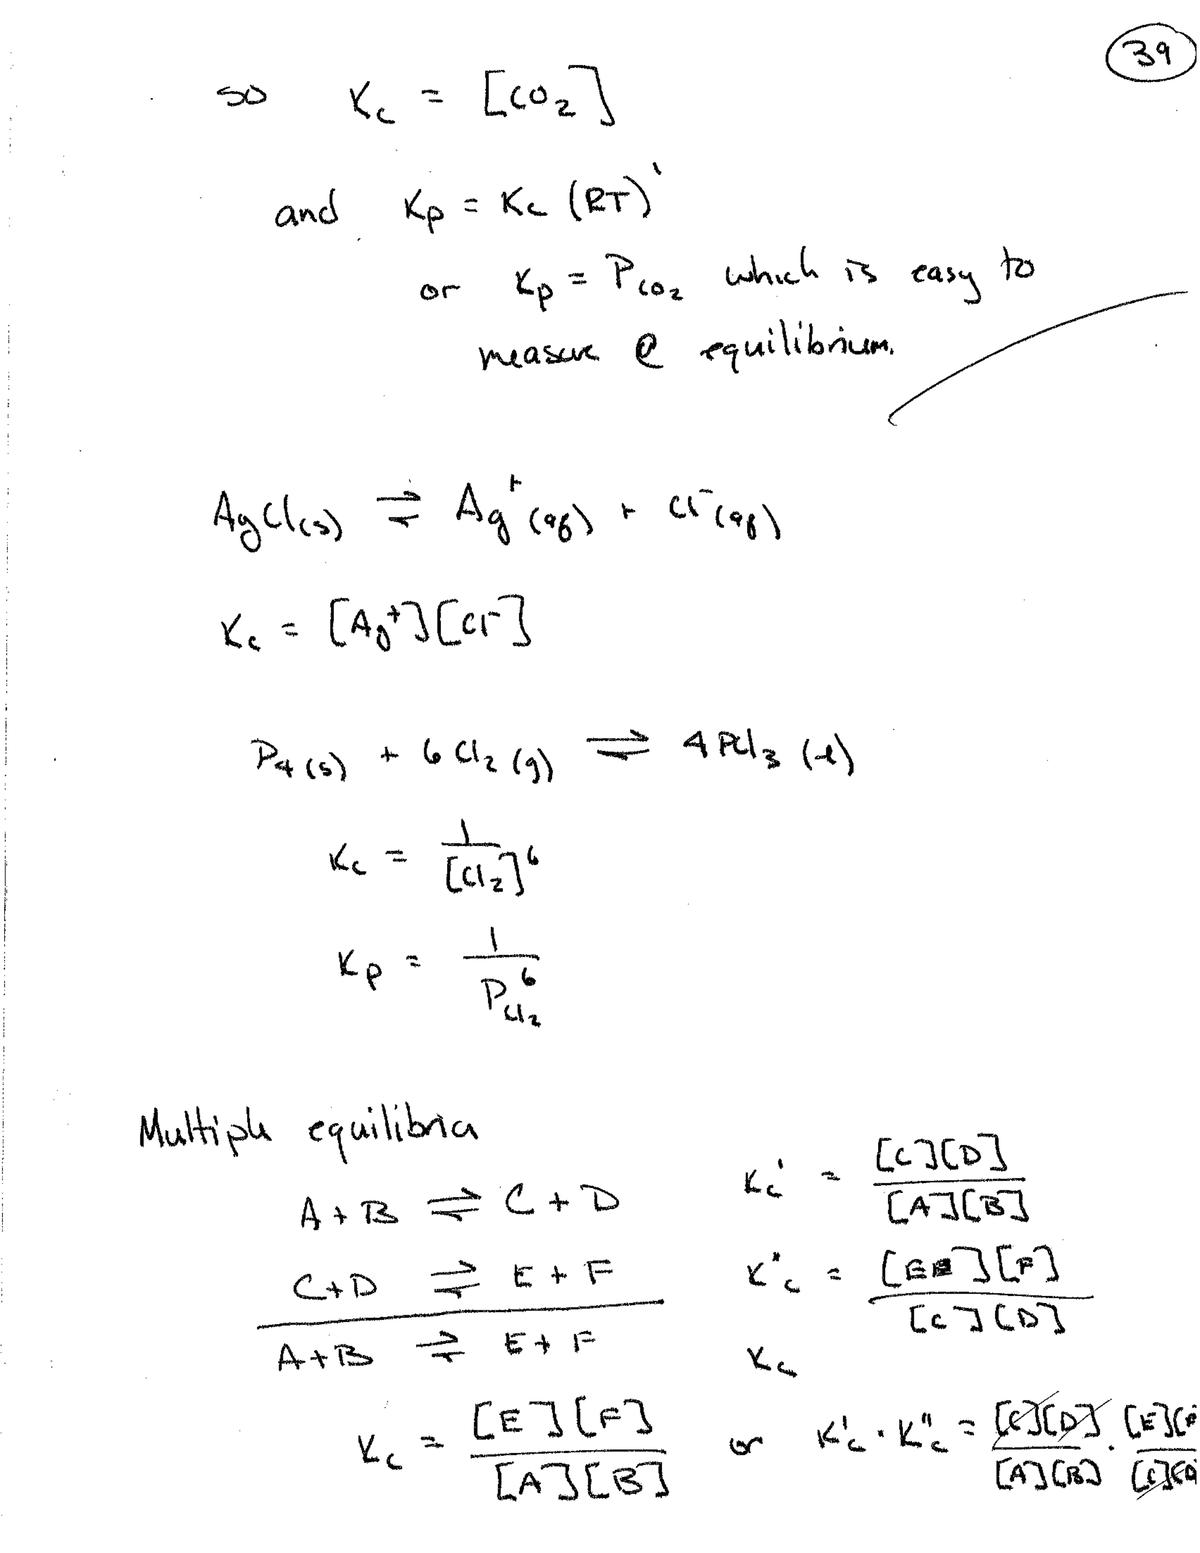 39
so Kc = [CO2]
and Kp = Kc (RT)^1
or Kp = PCO2 which is easy to
measure @ equilibrium.
AgCl(s) ⇌ Ag+(aq) + Cl-(aq)
Kc = [Ag+][Cl-]
P4(s) + 6Cl2(g) ⇌ 4PCl3(l)
Kc = 1/[Cl2]^6
Kp = 1/PCl2^6
Multiple equilibria
A+B ⇌ C+D Kc' = [C][D]/[A][B]
C+D ⇌ E+F K''c = [E][F]/[C][D]
A+B ⇌ E+F Kc
Kc = [E][F]/[A][B] or K'c · K''c = [C][D]/[A][B] · [E][F/[C][D